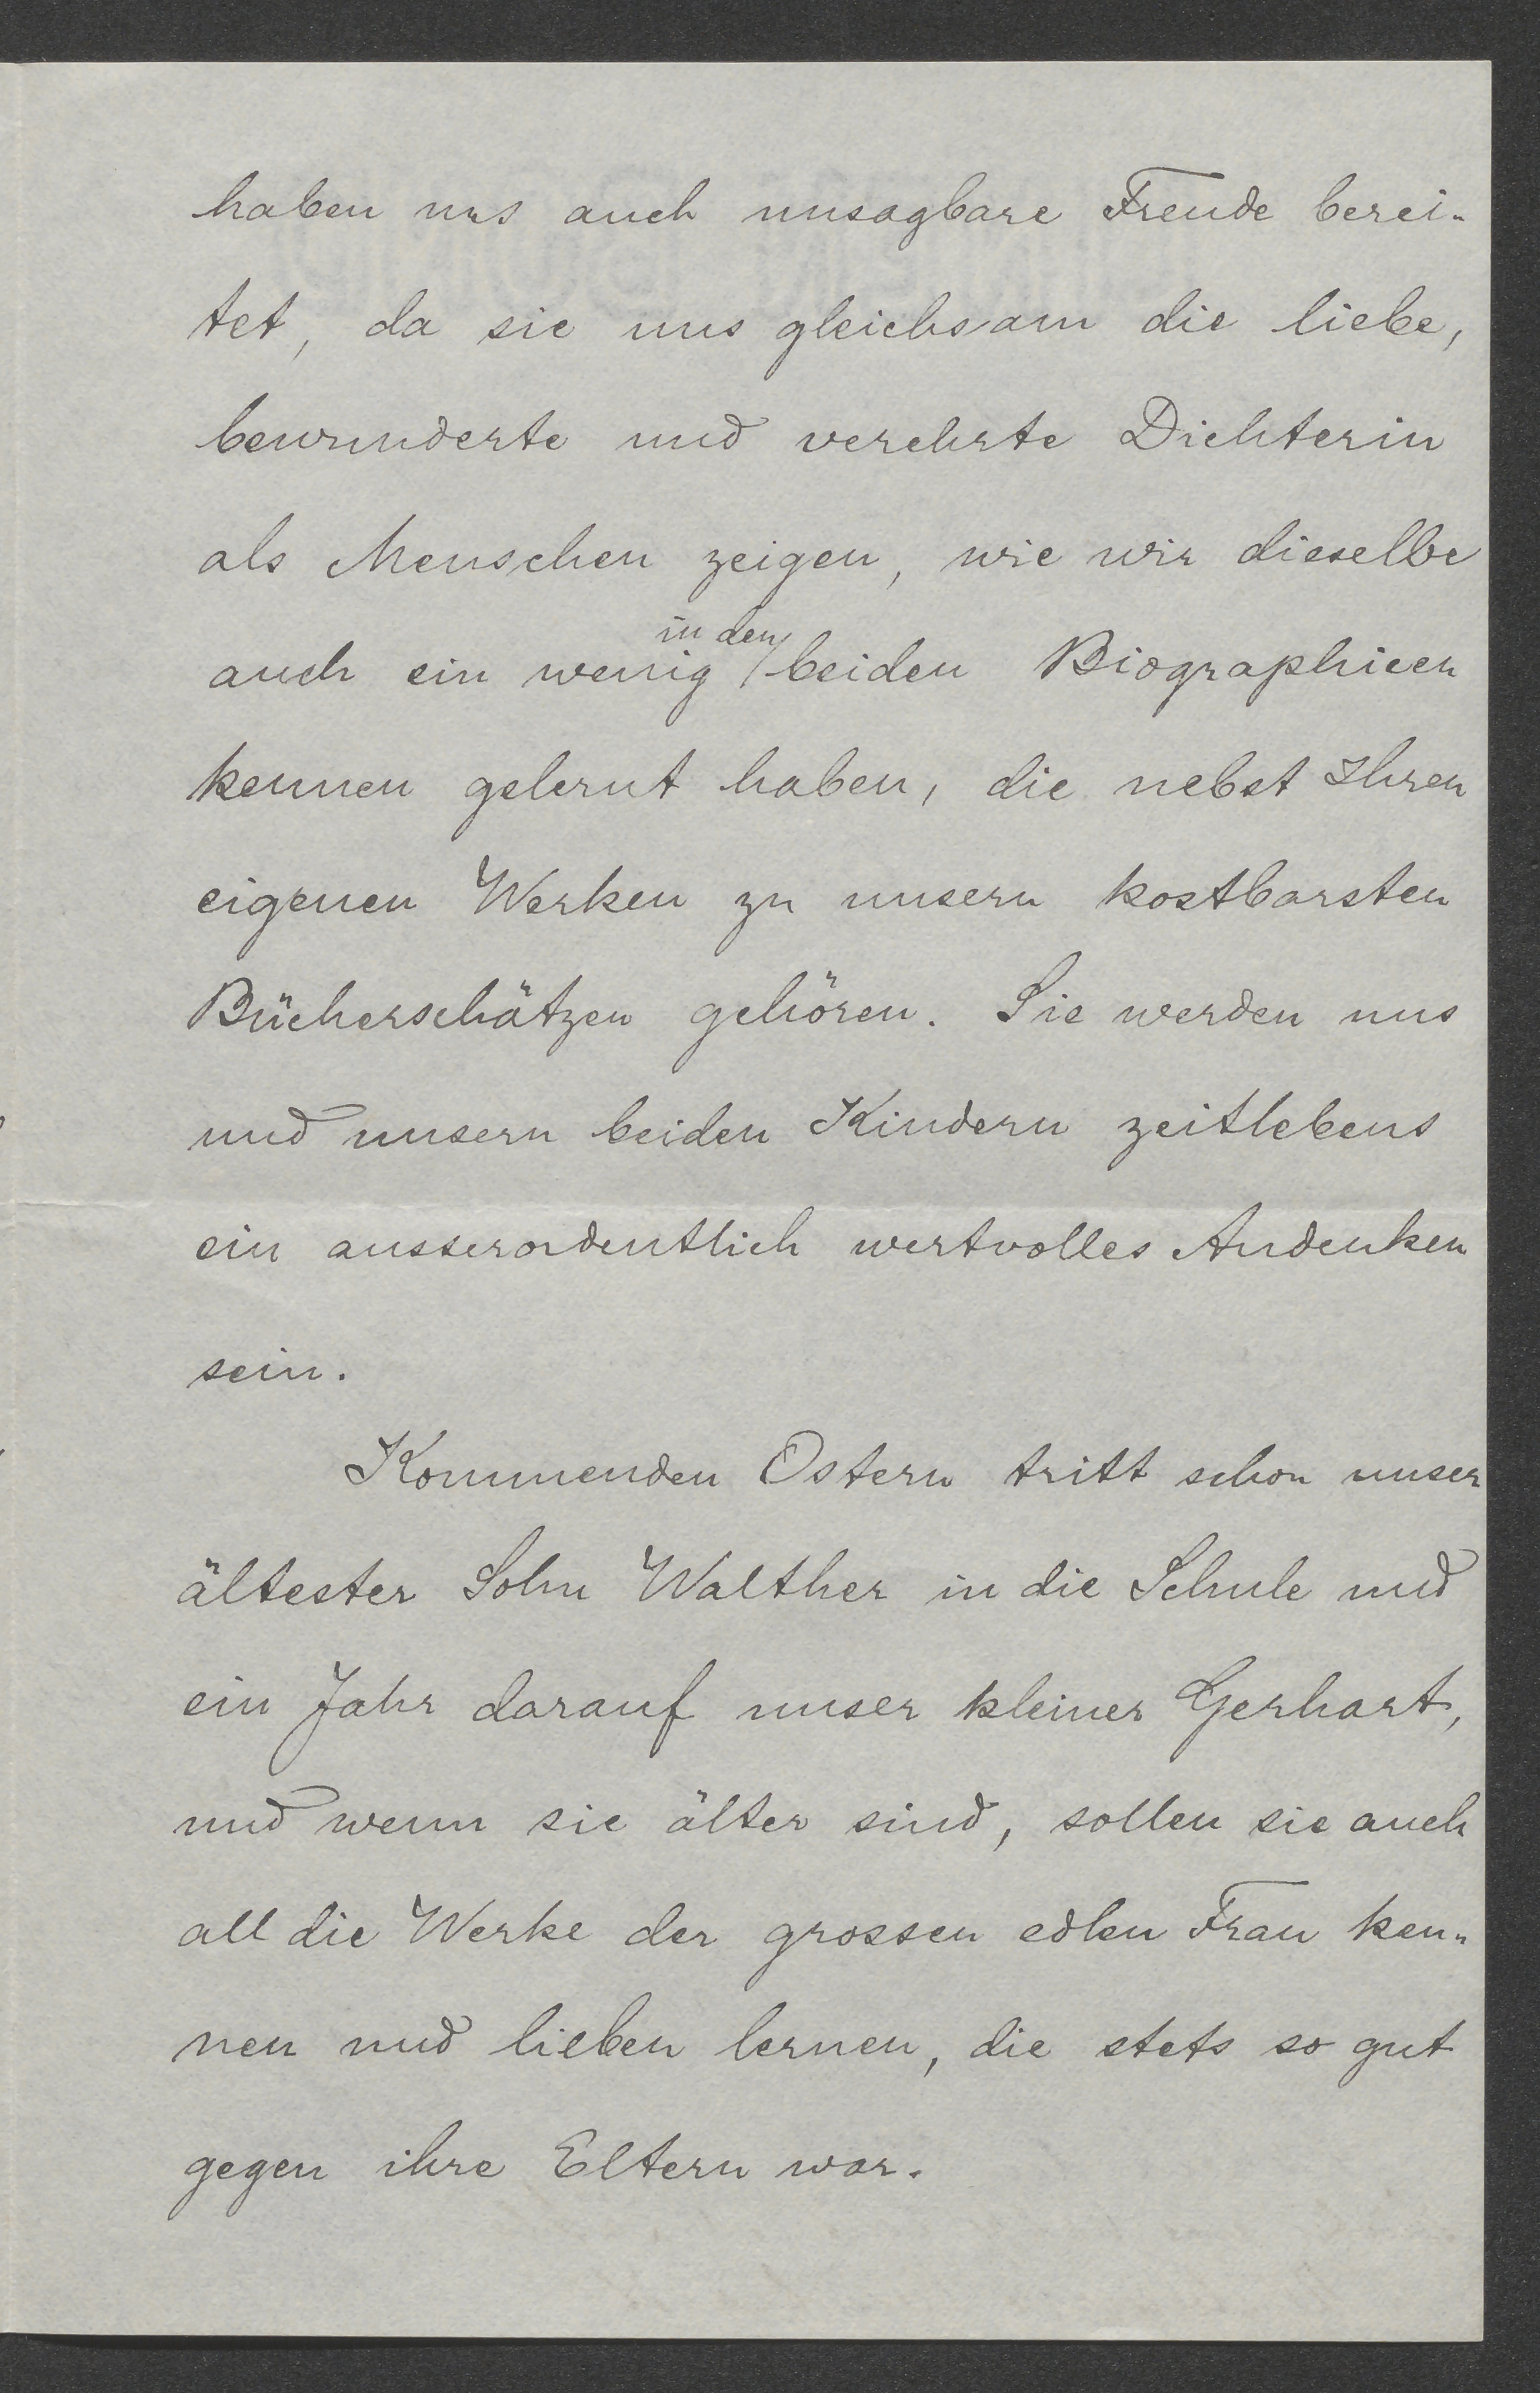 haben uns auch unsagbare Freude berei-
tet, da sie uns gleichsam die liebe,
bewunderte und verehrte Dichterin
als Menschen zeigen, wie wir dieselbe
auch ein wenig in den beiden Biographieen
kennen gelernt haben, die nebst Ihren
eigenen Werken zu unsern kostbarsten
Bücherschätzen gehören. Sie werden uns
und unsern beiden Kindern zeitlebens
ein ausserordentlich wertvolles Andenken
sein.
Kommenden Ostern tritt schon unser
ältester Sohn Walther in die Schule und
ein Jahr darauf unser kleiner Gerhart,
und wenn sie älter sind, sollen sie auch
all die Werke der grossen edlen Frau ken-
nen und lieben lernen, die stets so gut
gegen ihre Eltern war.